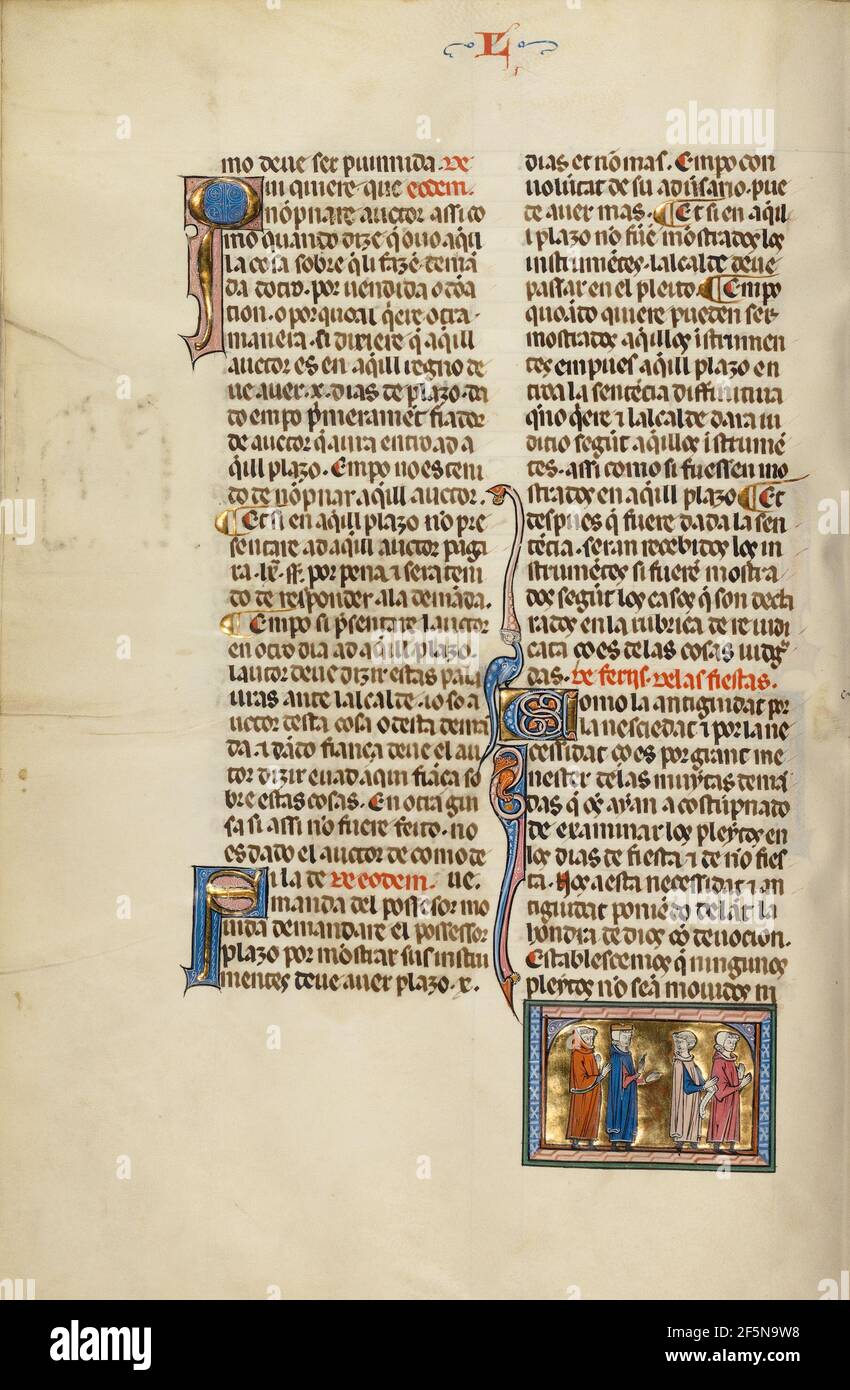 L
mo deue ser puinnida. De
ui quiere que eodem.
nõpnare auctor assi co
mo quando dize q̃ ouo aq̃ll
la cosa sobre q̃li fazẽ demã
da dotro. por uendida o dõa
cion. o por quoal q̃ere otra
manera. si dixiere q̃ aq̃ill
auctor es en aq̃ill regno de
ue auer .x. dias de plazo. da
do empo p̃meramẽt fiador
de auctor q̃ aura entroad a
q̃ill plazo. Empo no es teni
do de nõpnar aq̃ill auctor.
Et si en aq̃ill plazo nõ pre
sentare ad aq̃ill auctor pãga
ra .lx. ss. por pena ⁊ sera teni
do de responder. ala demãda.
Empo si p̃sentare lauctor
en otro dia ad aq̃ill plazo.
lauctor deue dizir estas pala
uras ante lalcalde. io so a
uctor desta cosa o desta demã
da. ⁊ dãdo fiança deue el au
ctor dizir euad aquin fiãça so
bre estas cosas. En otra gui
sa si assi nõ fuere feito. no
es dado el auctor de como de
ila de De eodem. ue.
manda del possesor mo
uida demandare el possessor
plazo por mostrar sus instru
mentos deue auer plazo .x.
dias et nõ mas. Empo con
uolũtat de su aduersario. pue
de auer mas. Et si en aq̃ill
plazo nõ fuẽ mostrados los
instrumẽtos. lalcalde deue
passar en el pleito. Empo
quoãdo quiere pueden ser
mostrados aq̃illos ĩstrumen
tos empues aq̃ill plazo en
troa la sentẽcia diffinitiua
q̃no q̃ere ⁊ lalcalde dara iu
dicio segũt aq̃illos ĩstrumẽ
tos. assi como si fuessen mo
strados en aq̃ill plazo Et
despues q̃ fuere dada la sen
tẽcia. seran recebidos los in
strumẽtos si fuerẽ mostra
dos segũt los casos q̃ son decla
rados en la rubrica de re iudi
cata ço es delas cosas iudg̃
das. De ferijs. Delas fiestas.
omo la antiguidat por
la nesciedat ⁊ por la ne
cessidat ço es por grant me
nester delas muytas demã
das q̃ ayan acostũpnado
de examinar los pleytos en
los dias de fiesta ⁊ de nõ fies
ta. Nos a esta necessidat ⁊ an
tiguidat poniẽdo delãt la
hondra de dios cõ deuocion.
Establescemos q̃ ningunos
pleytos nõ seã mouidos ni